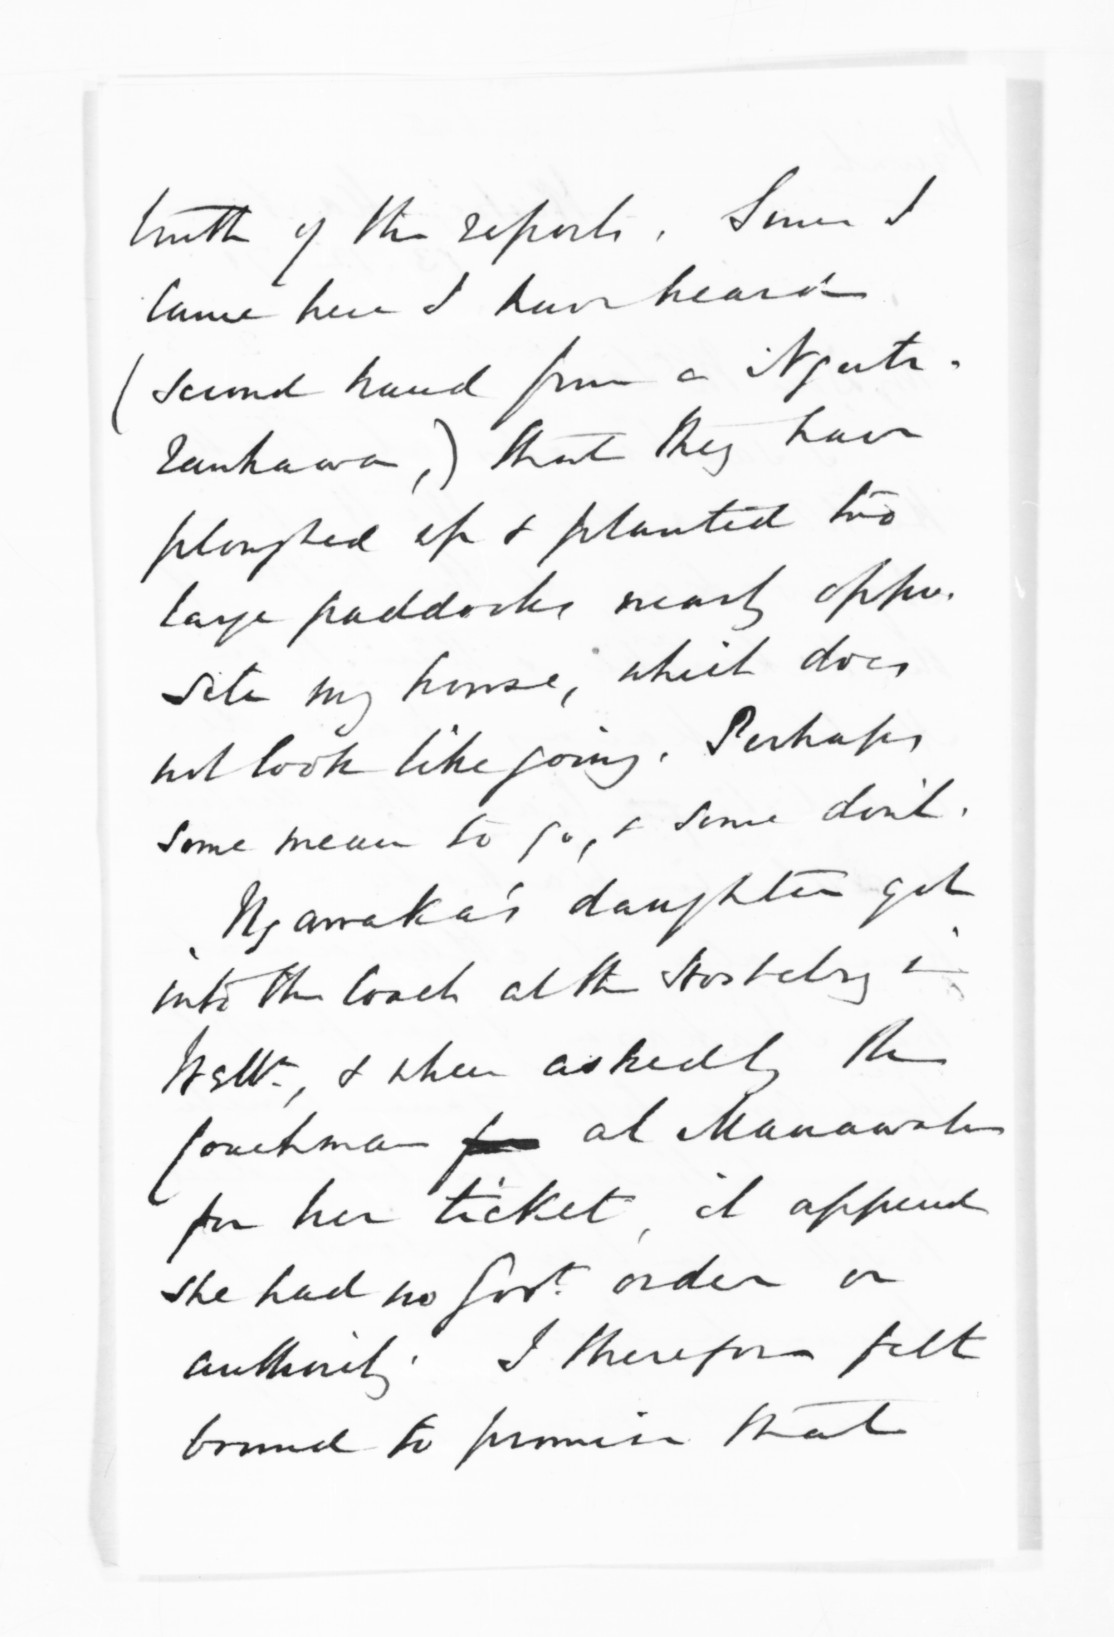 truth of the reports. Since I
came here I have heard
(second hand from a Ngati-
raukawa,) that they have
ploughed up & planted two
large paddocks nearly oppo-
site my house, which does
not look like going. Perhaps
some mean to go, & some don't.
Ngawaka's daughter got
into the coach at the Hostelry in
Welln., & when asked by the
coachman at Manawatu
for her ticket, it appeared
she had no Govt. order or
authority. I therefore felt
bound to promise that